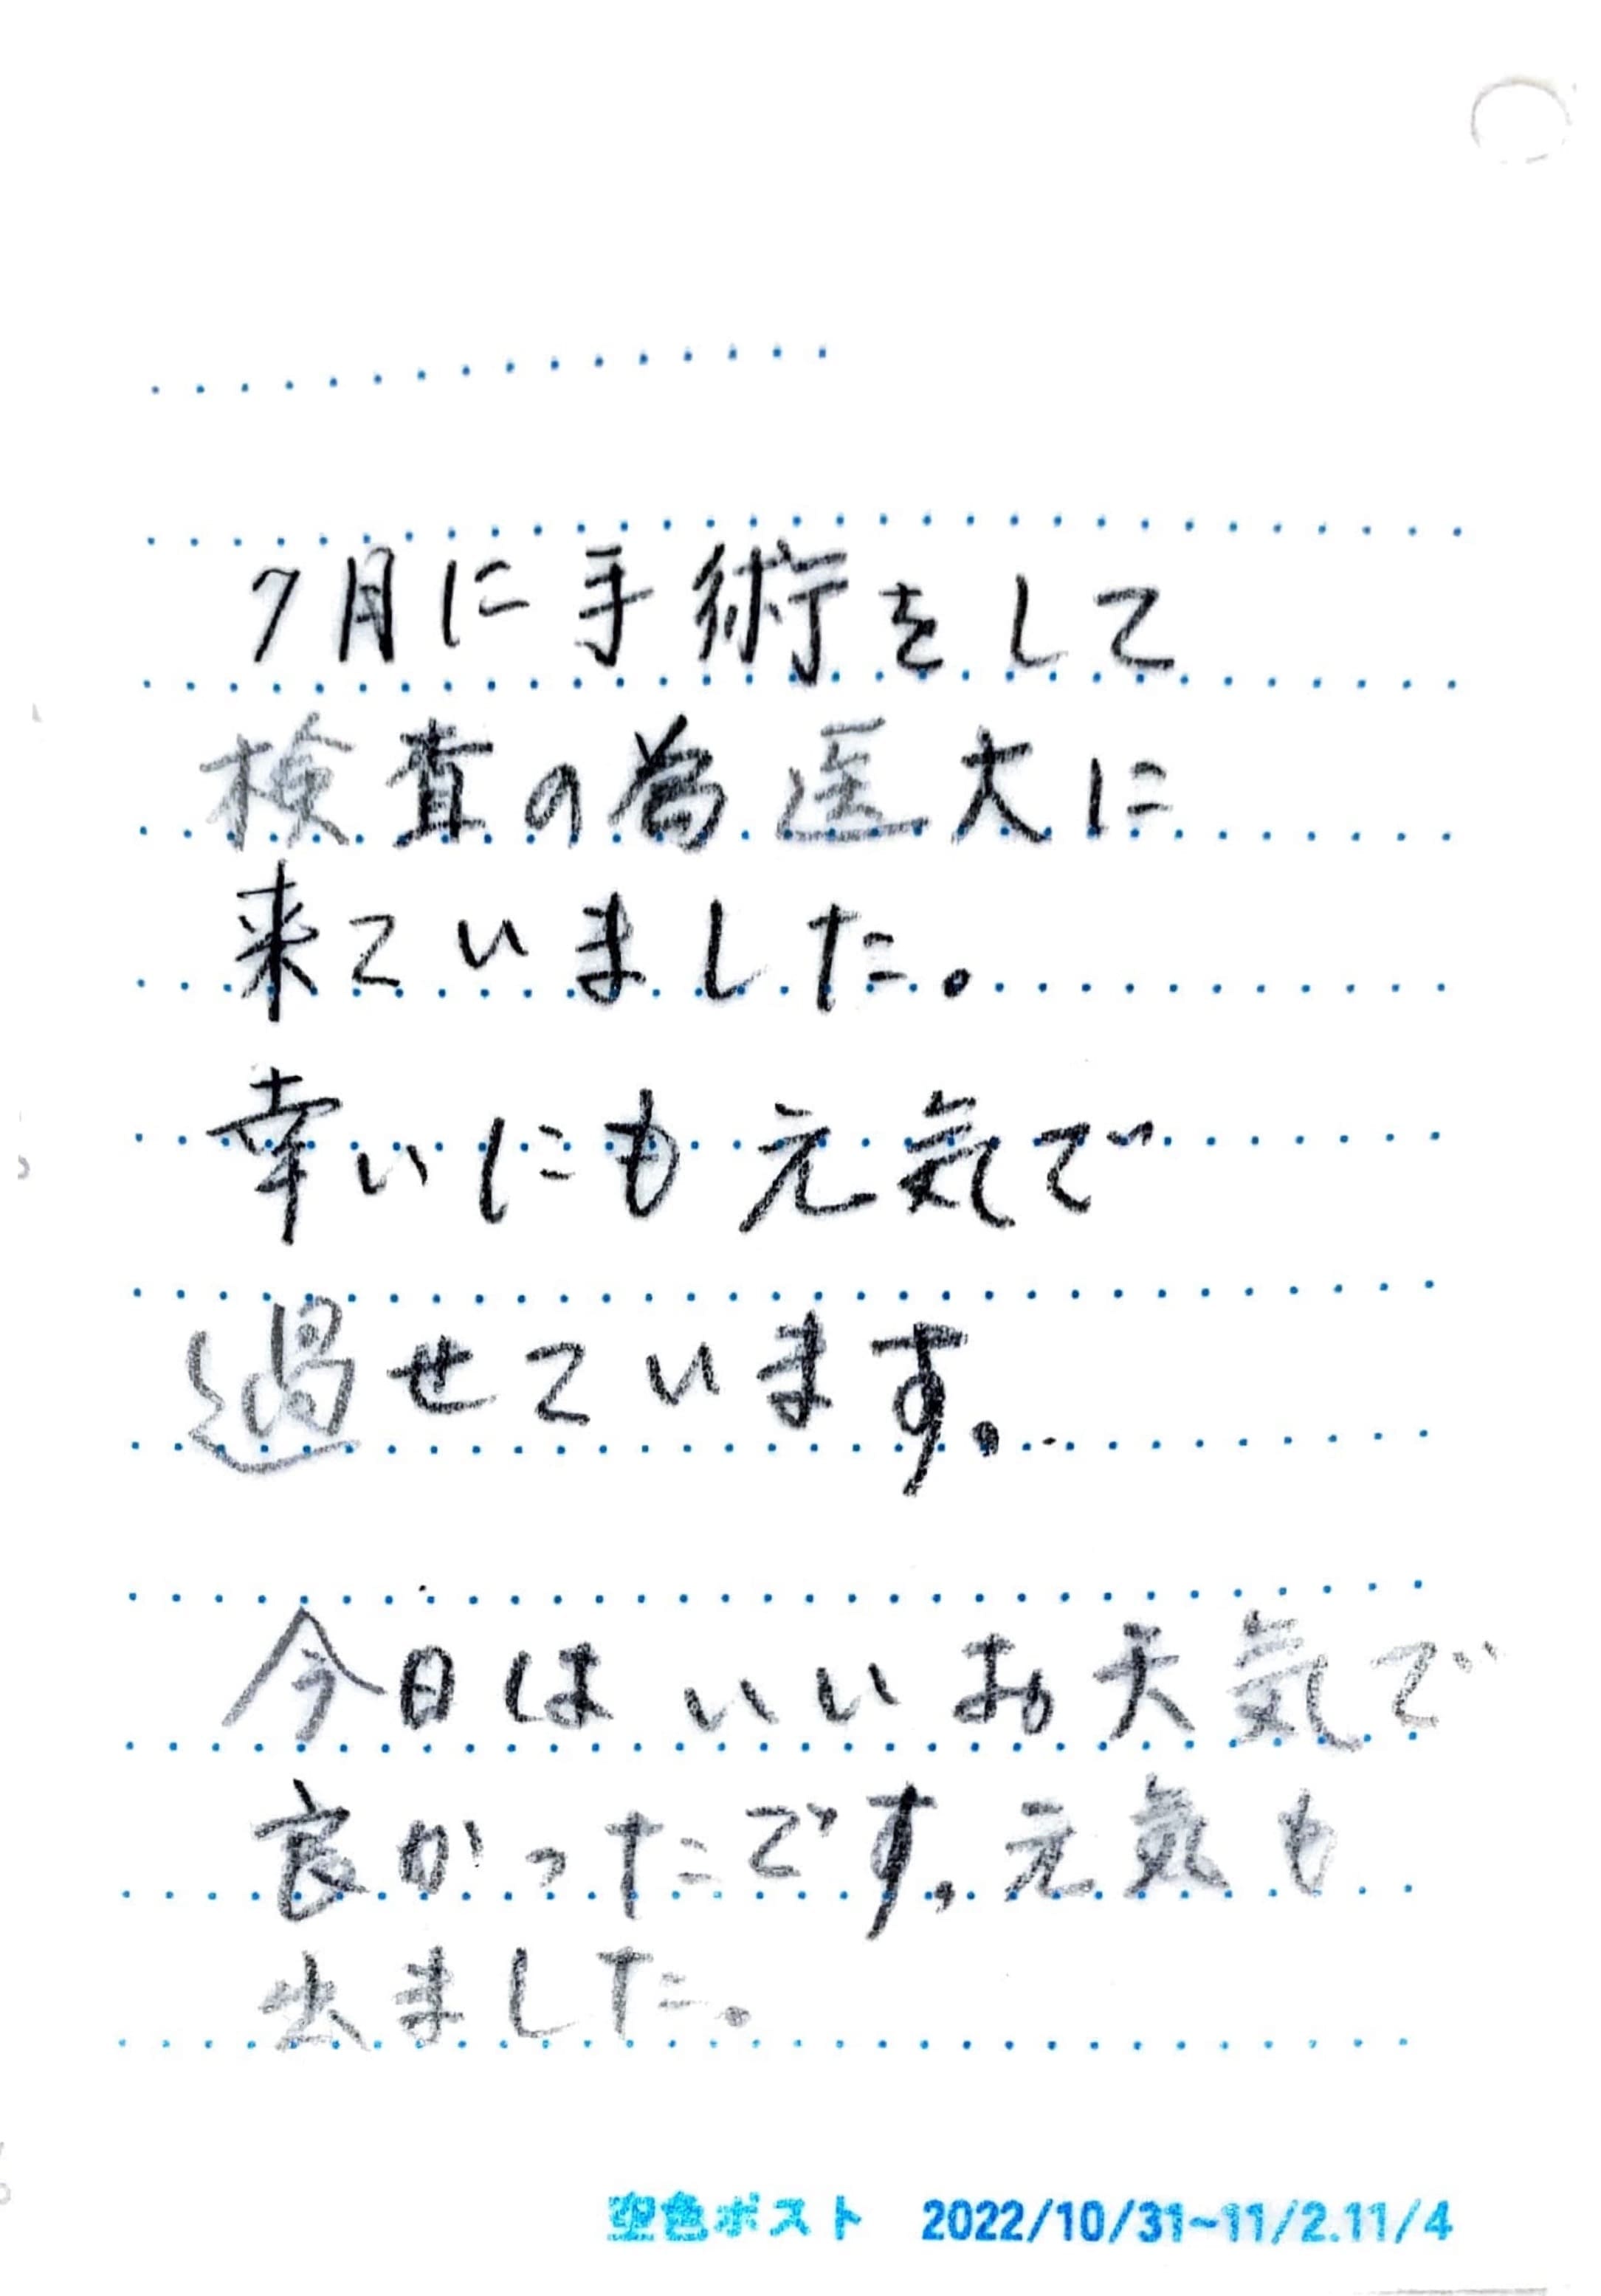 7月に手術をして
検査の為医大に
来ていました。
幸いにも元気で
過せています。
今日はいいお天気で
良かったです。元気も
出ました。
空色ポスト 2022/10/31~11/2.11/4